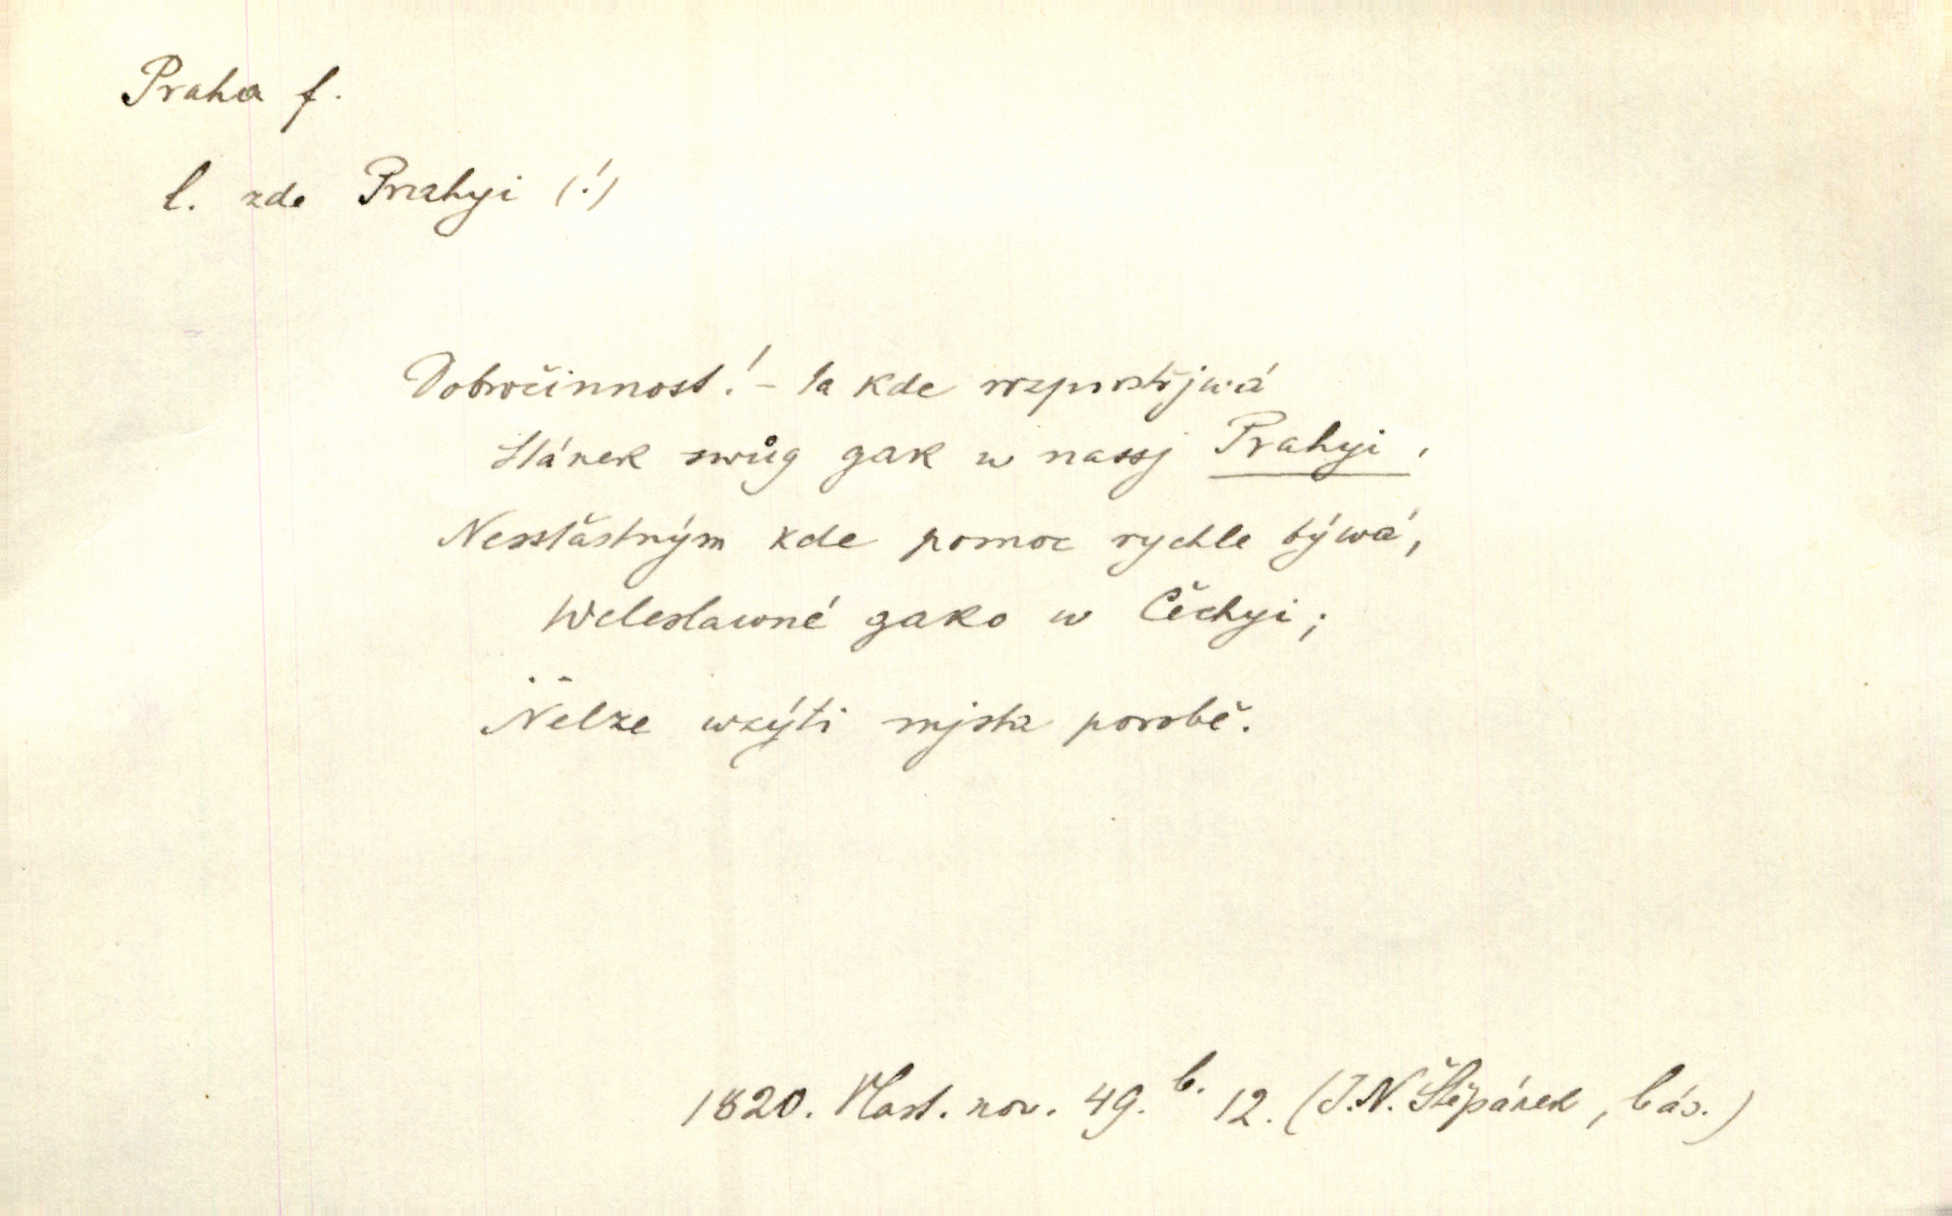 Praha f.
l. zde Prahyi (!)
Dobročinnost! – ta kde rozprostřjwá
Stánek swůg gak w nassj Prahyi,
Nessťastným kde pomoc rychle býwá,
Weleslawné gako w Čechyi;
Nelze wzýti mjsta porobě.
1820. Vlast. nov. 49. b. 12. (J. N. Štěpánek, bás.)